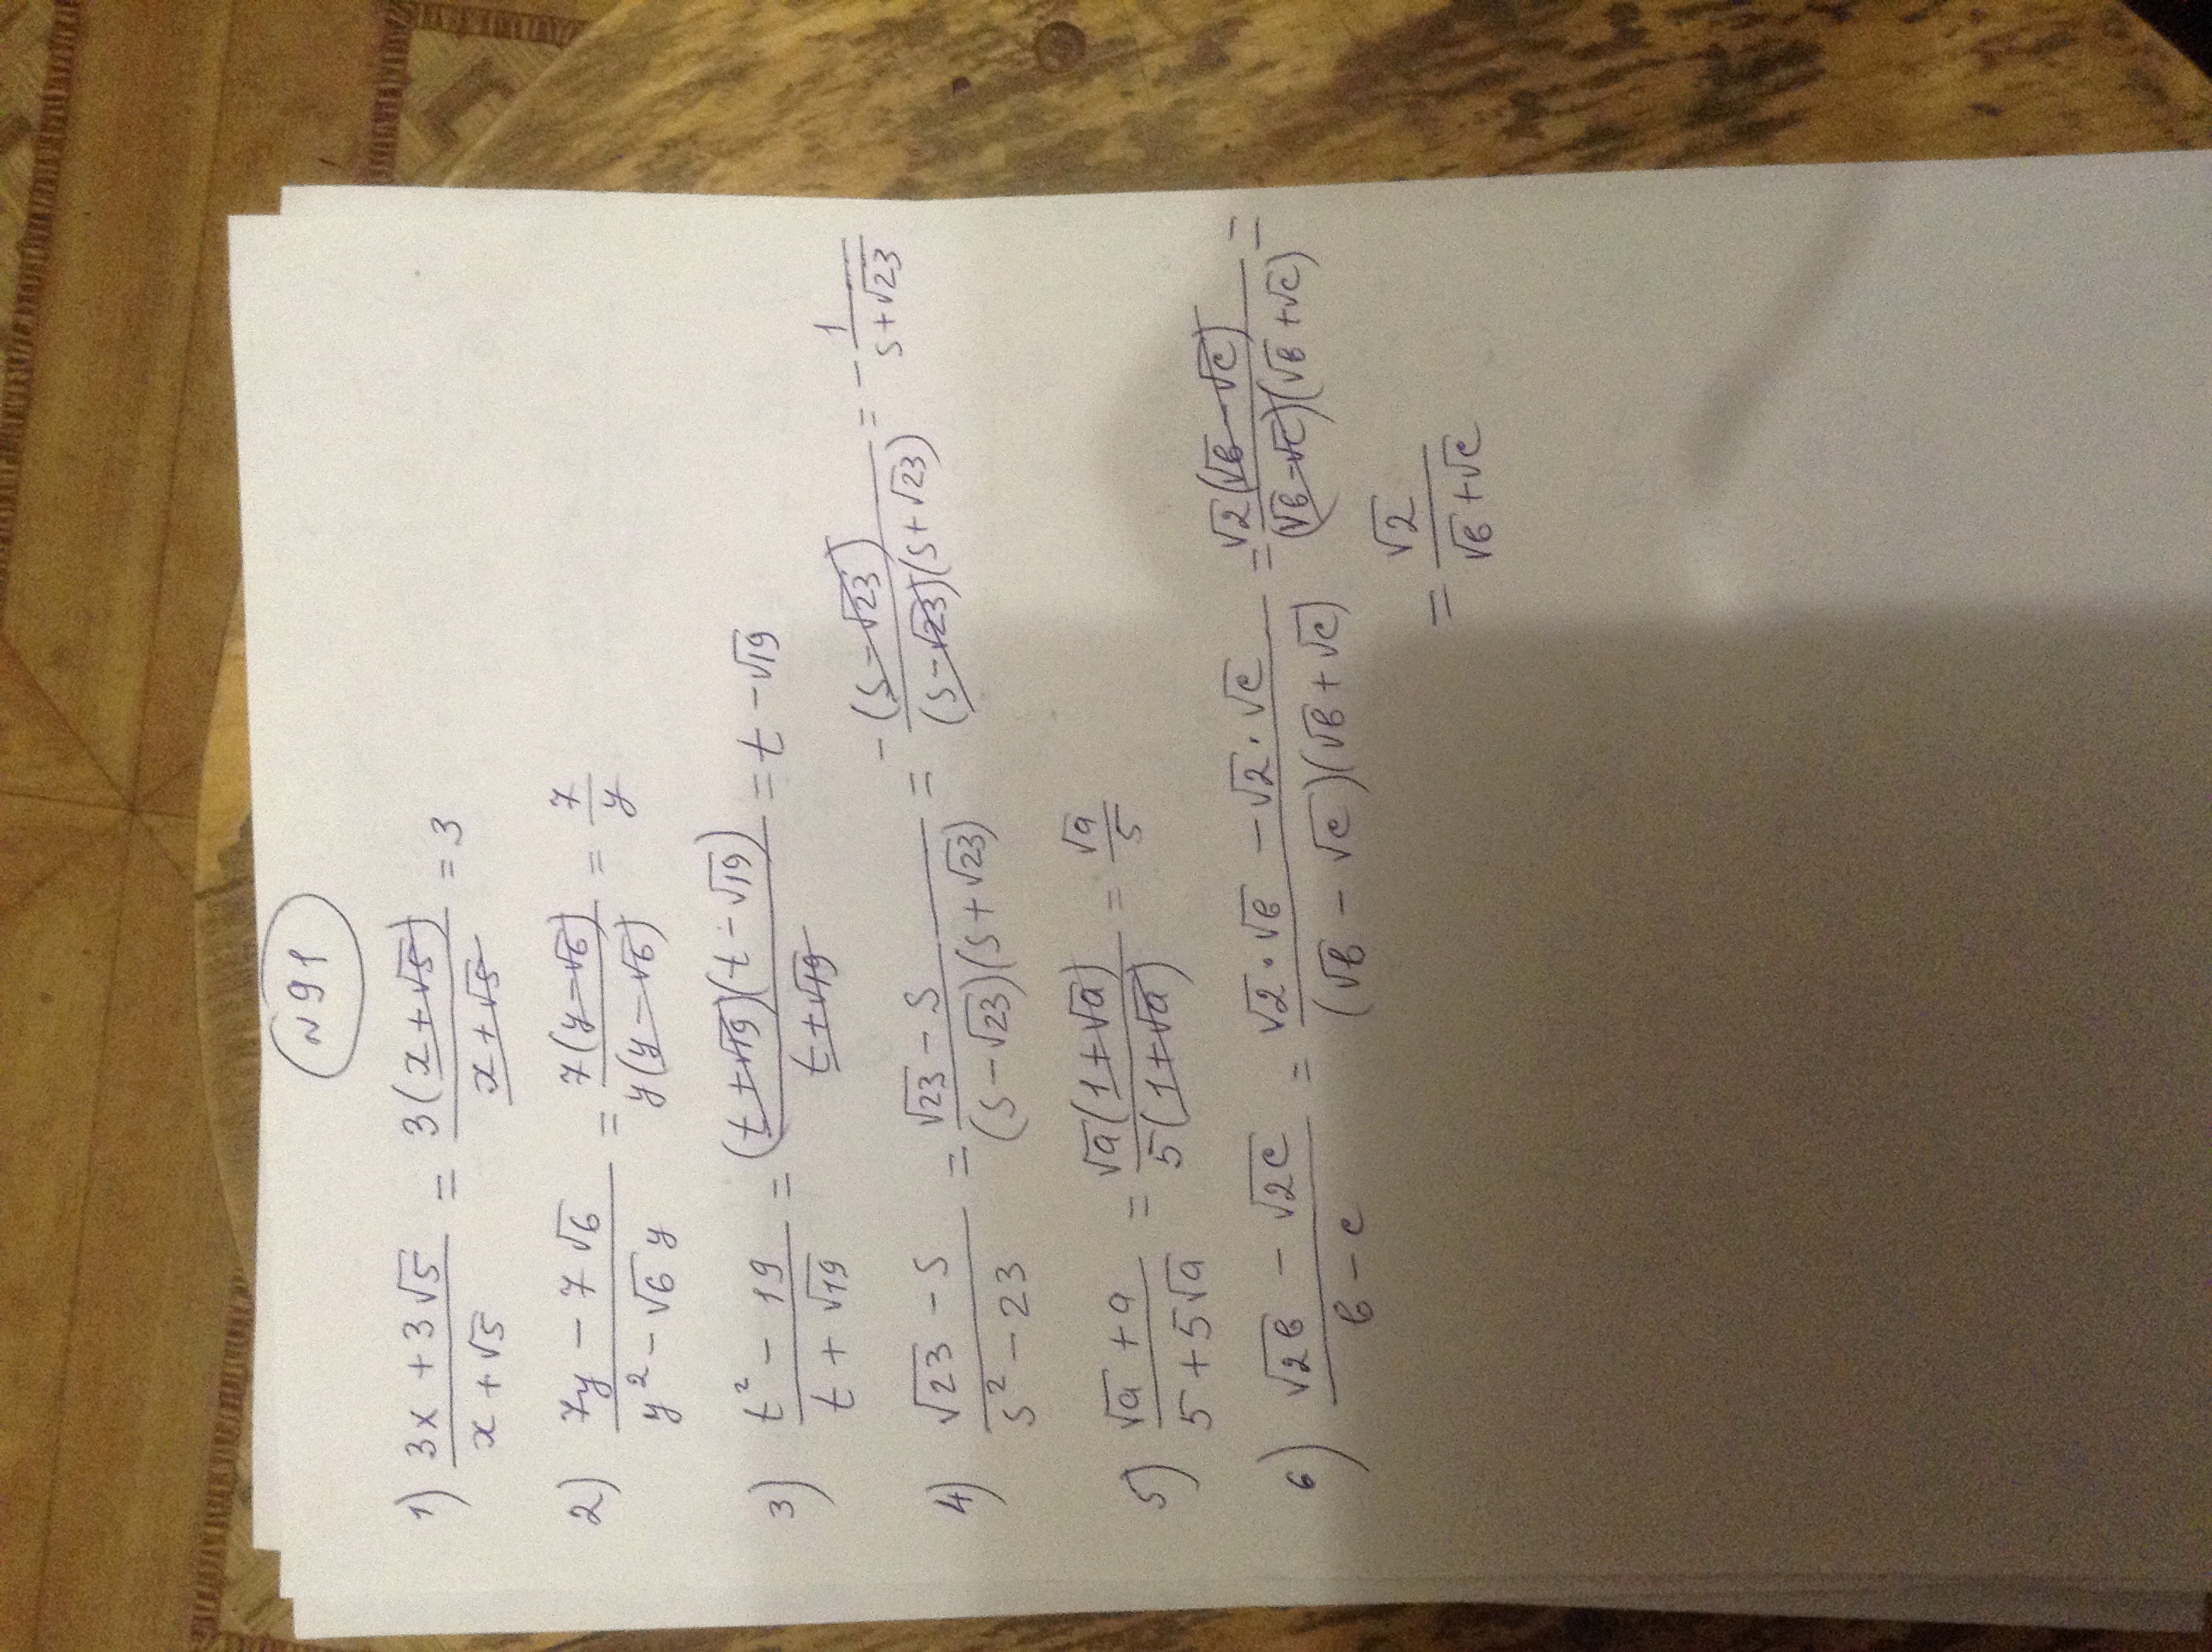 N91
1) (3x + 3√5)/(x + √5) = 3(x+√5)/(x+√5) = 3
2) (7y − 7√6)/(y² − √6 y) = 7(y−√6)/(y(y−√6)) = 7/y
3) (t² − 19)/(t + √19) = (t+√19)(t−√19)/(t+√19) = t − √19
4) (√23 − s)/(s² − 23) = (√23 − s)/((s−√23)(s+√23)) = −(s−√23)/((s−√23)(s+√23)) = −1/(s+√23)
5) (√a + a)/(5 + 5√a) = √a(1+√a)/(5(1+√a)) = √a/5
6) (√2в − √2c)/(в − c) = (√2·√в − √2·√c)/((√в − √c)(√в + √c)) = √2(√в−√c)/((√в−√c)(√в+√c)) =
= √2/(√в+√c)